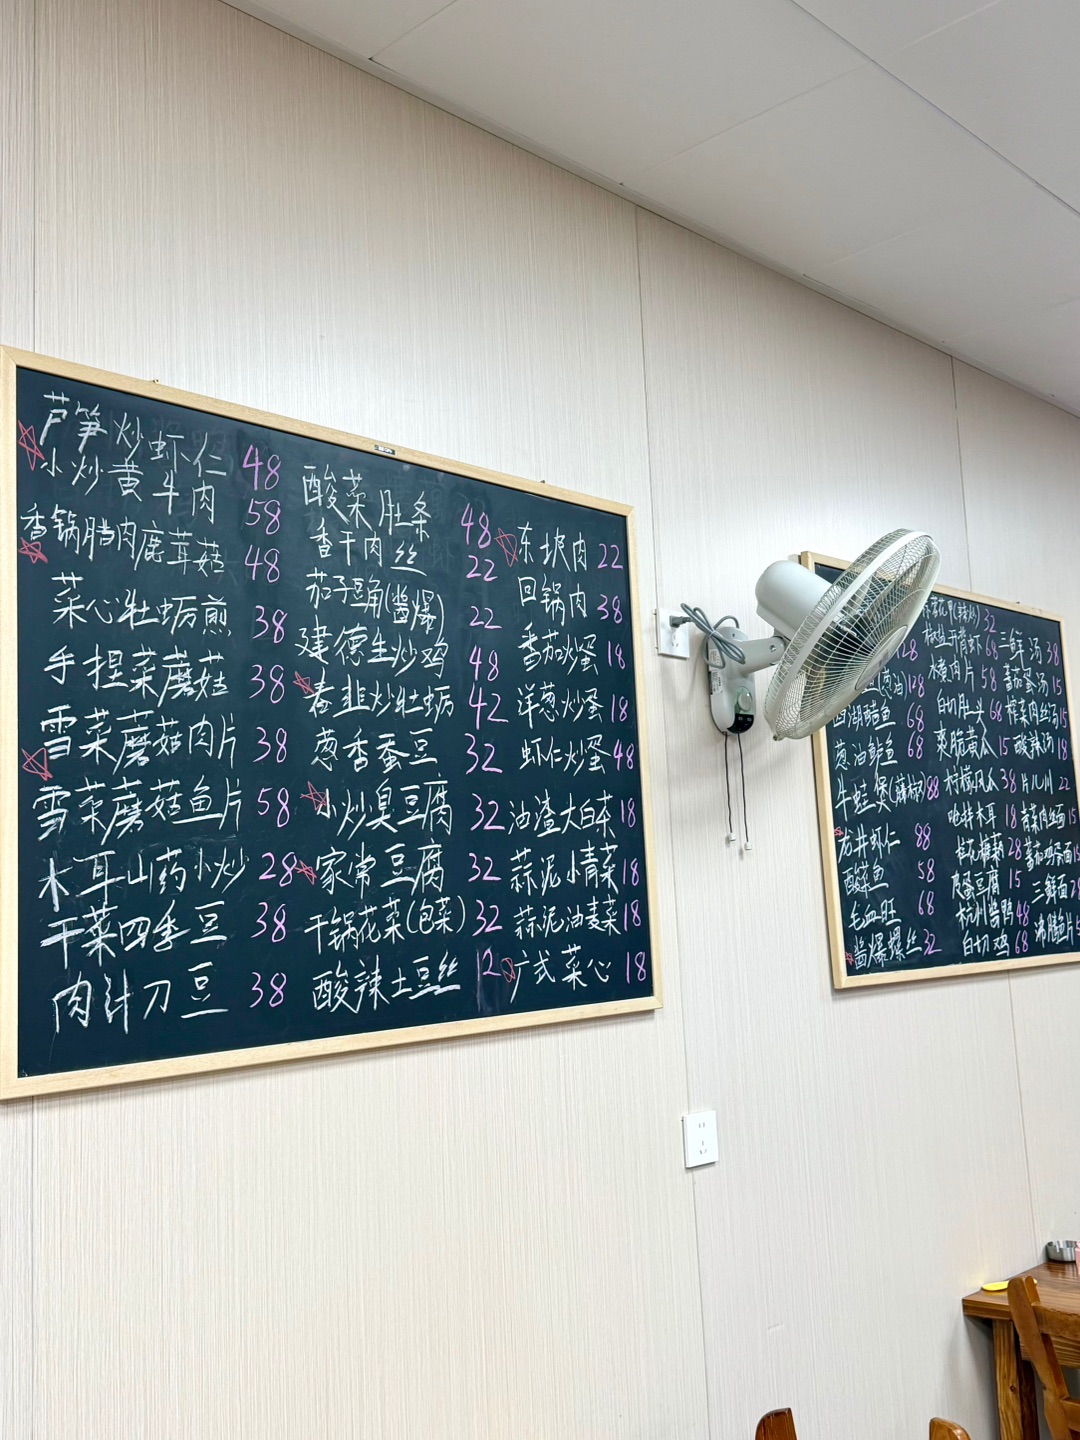 芦笋炒虾仁 48
小炒黄牛肉 58
香锅腊肉鹿茸菇 48
菜心牡蛎煎 38
手捏菜蘑菇 38
雪菜蘑菇肉片 38
雪菜蘑菇鱼片 58
木耳山药小炒 28
干菜四季豆 38
肉汁刀豆 38
酸菜肚条 48
香干肉丝 22
茄子豆角(酱爆) 22
建德生炒鸡 48
春韭炒牡蛎 42
葱香蚕豆 32
小炒臭豆腐 32
家常豆腐 32
干锅花菜(包菜) 32
酸辣土豆丝 12
东坡肉 22
回锅肉 38
番茄炒蛋 18
洋葱炒蛋 18
虾仁炒蛋 48
油渣大白菜 18
蒜泥小青菜 18
蒜泥油麦菜 18
广式菜心 18
128
(葱油) 128
西湖醋鱼 68
葱油鲈鱼 68
牛蛙煲(藤椒) 88
龙井虾仁 88
酸菜鱼 58
毛血旺 68
酱爆螺丝 32
(辣炒) 32
椒盐干背虾 68
水煮肉片 58
白切肚头 68
爽脆黄瓜 15
柠檬凤爪 38
呛拌木耳 18
桂花糖藕 28
皮蛋豆腐 15
杭州酱鸭 48
白切鸡 68
三鲜汤 38
番茄蛋汤 15
榨菜肉丝汤 15
酸辣汤 18
片儿川 22
青菜肉丝面 15
番茄鸡蛋面 15
三鲜面 28
沸腾鱼片